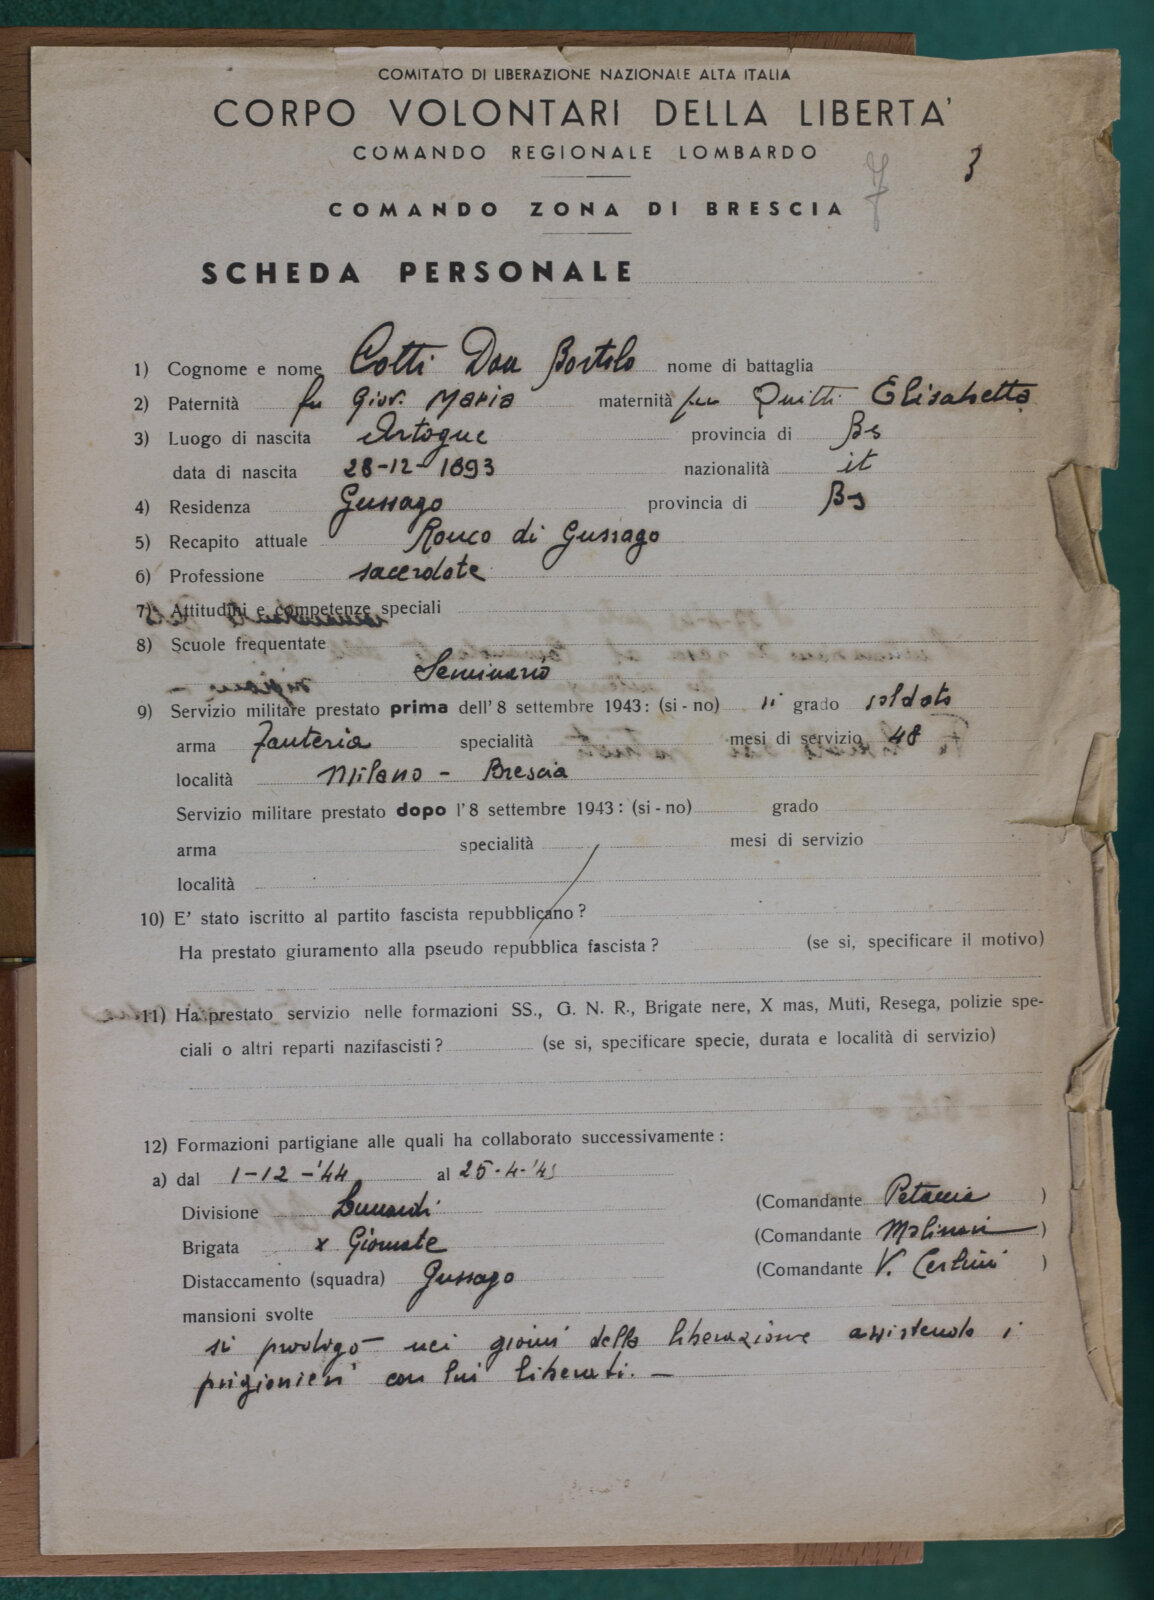 COMITATO DI LIBERAZIONE NAZIONALE ALTA ITALIA
CORPO VOLONTARI DELLA LIBERTA'
COMANDO REGIONALE LOMBARDO
7 3
COMANDO ZONA DI BRESCIA
SCHEDA PERSONALE
1) Cognome e nome Cotti Don Bortolo nome di battaglia
2) Paternità fu Giov. Maria maternità fu Quitti Elisabetta
3) Luogo di nascita Artogne provincia di Bs
data di nascita 28-12-1893 nazionalità it
4) Residenza Gussago provincia di Bs
5) Recapito attuale Ronco di Gussago
6) Professione sacerdote
7) Attitudini e competenze speciali
8) Scuole frequentate
Seminario
9) Servizio militare prestato prima dell'8 settembre 1943: (si - no) si grado soldato
arma Fanteria specialità mesi di servizio 48
località Milano - Brescia
Servizio militare prestato dopo l'8 settembre 1943: (si - no) grado
arma specialità mesi di servizio
località
10) E' stato iscritto al partito fascista repubblicano?
Ha prestato giuramento alla pseudo repubblica fascista? (se si, specificare il motivo)
11) Ha prestato servizio nelle formazioni SS., G. N. R., Brigate nere, X mas, Muti, Resega, polizie spe-
ciali o altri reparti nazifascisti? (se si, specificare specie, durata e località di servizio)
12) Formazioni partigiane alle quali ha collaborato successivamente:
a) dal 1-12-'44 al 25-4-'45
Divisione Lunardi (Comandante )
Brigata X Giornate (Comandante Molinari )
Distaccamento (squadra) Gussago (Comandante V. )
mansioni svolte
si prodigò nei giorni della liberazione assistendo i
prigionieri con lui liberati. -